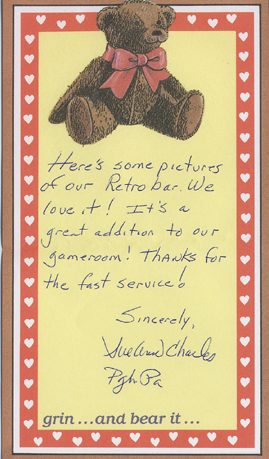 Here's some pictures
of our Retro bar. We
love it! It's a
great addition to our
gameroom! Thanks for
the fast service!
Sincerely,
Sue Ann Charles
Pgh Pa
grin...and bear it...